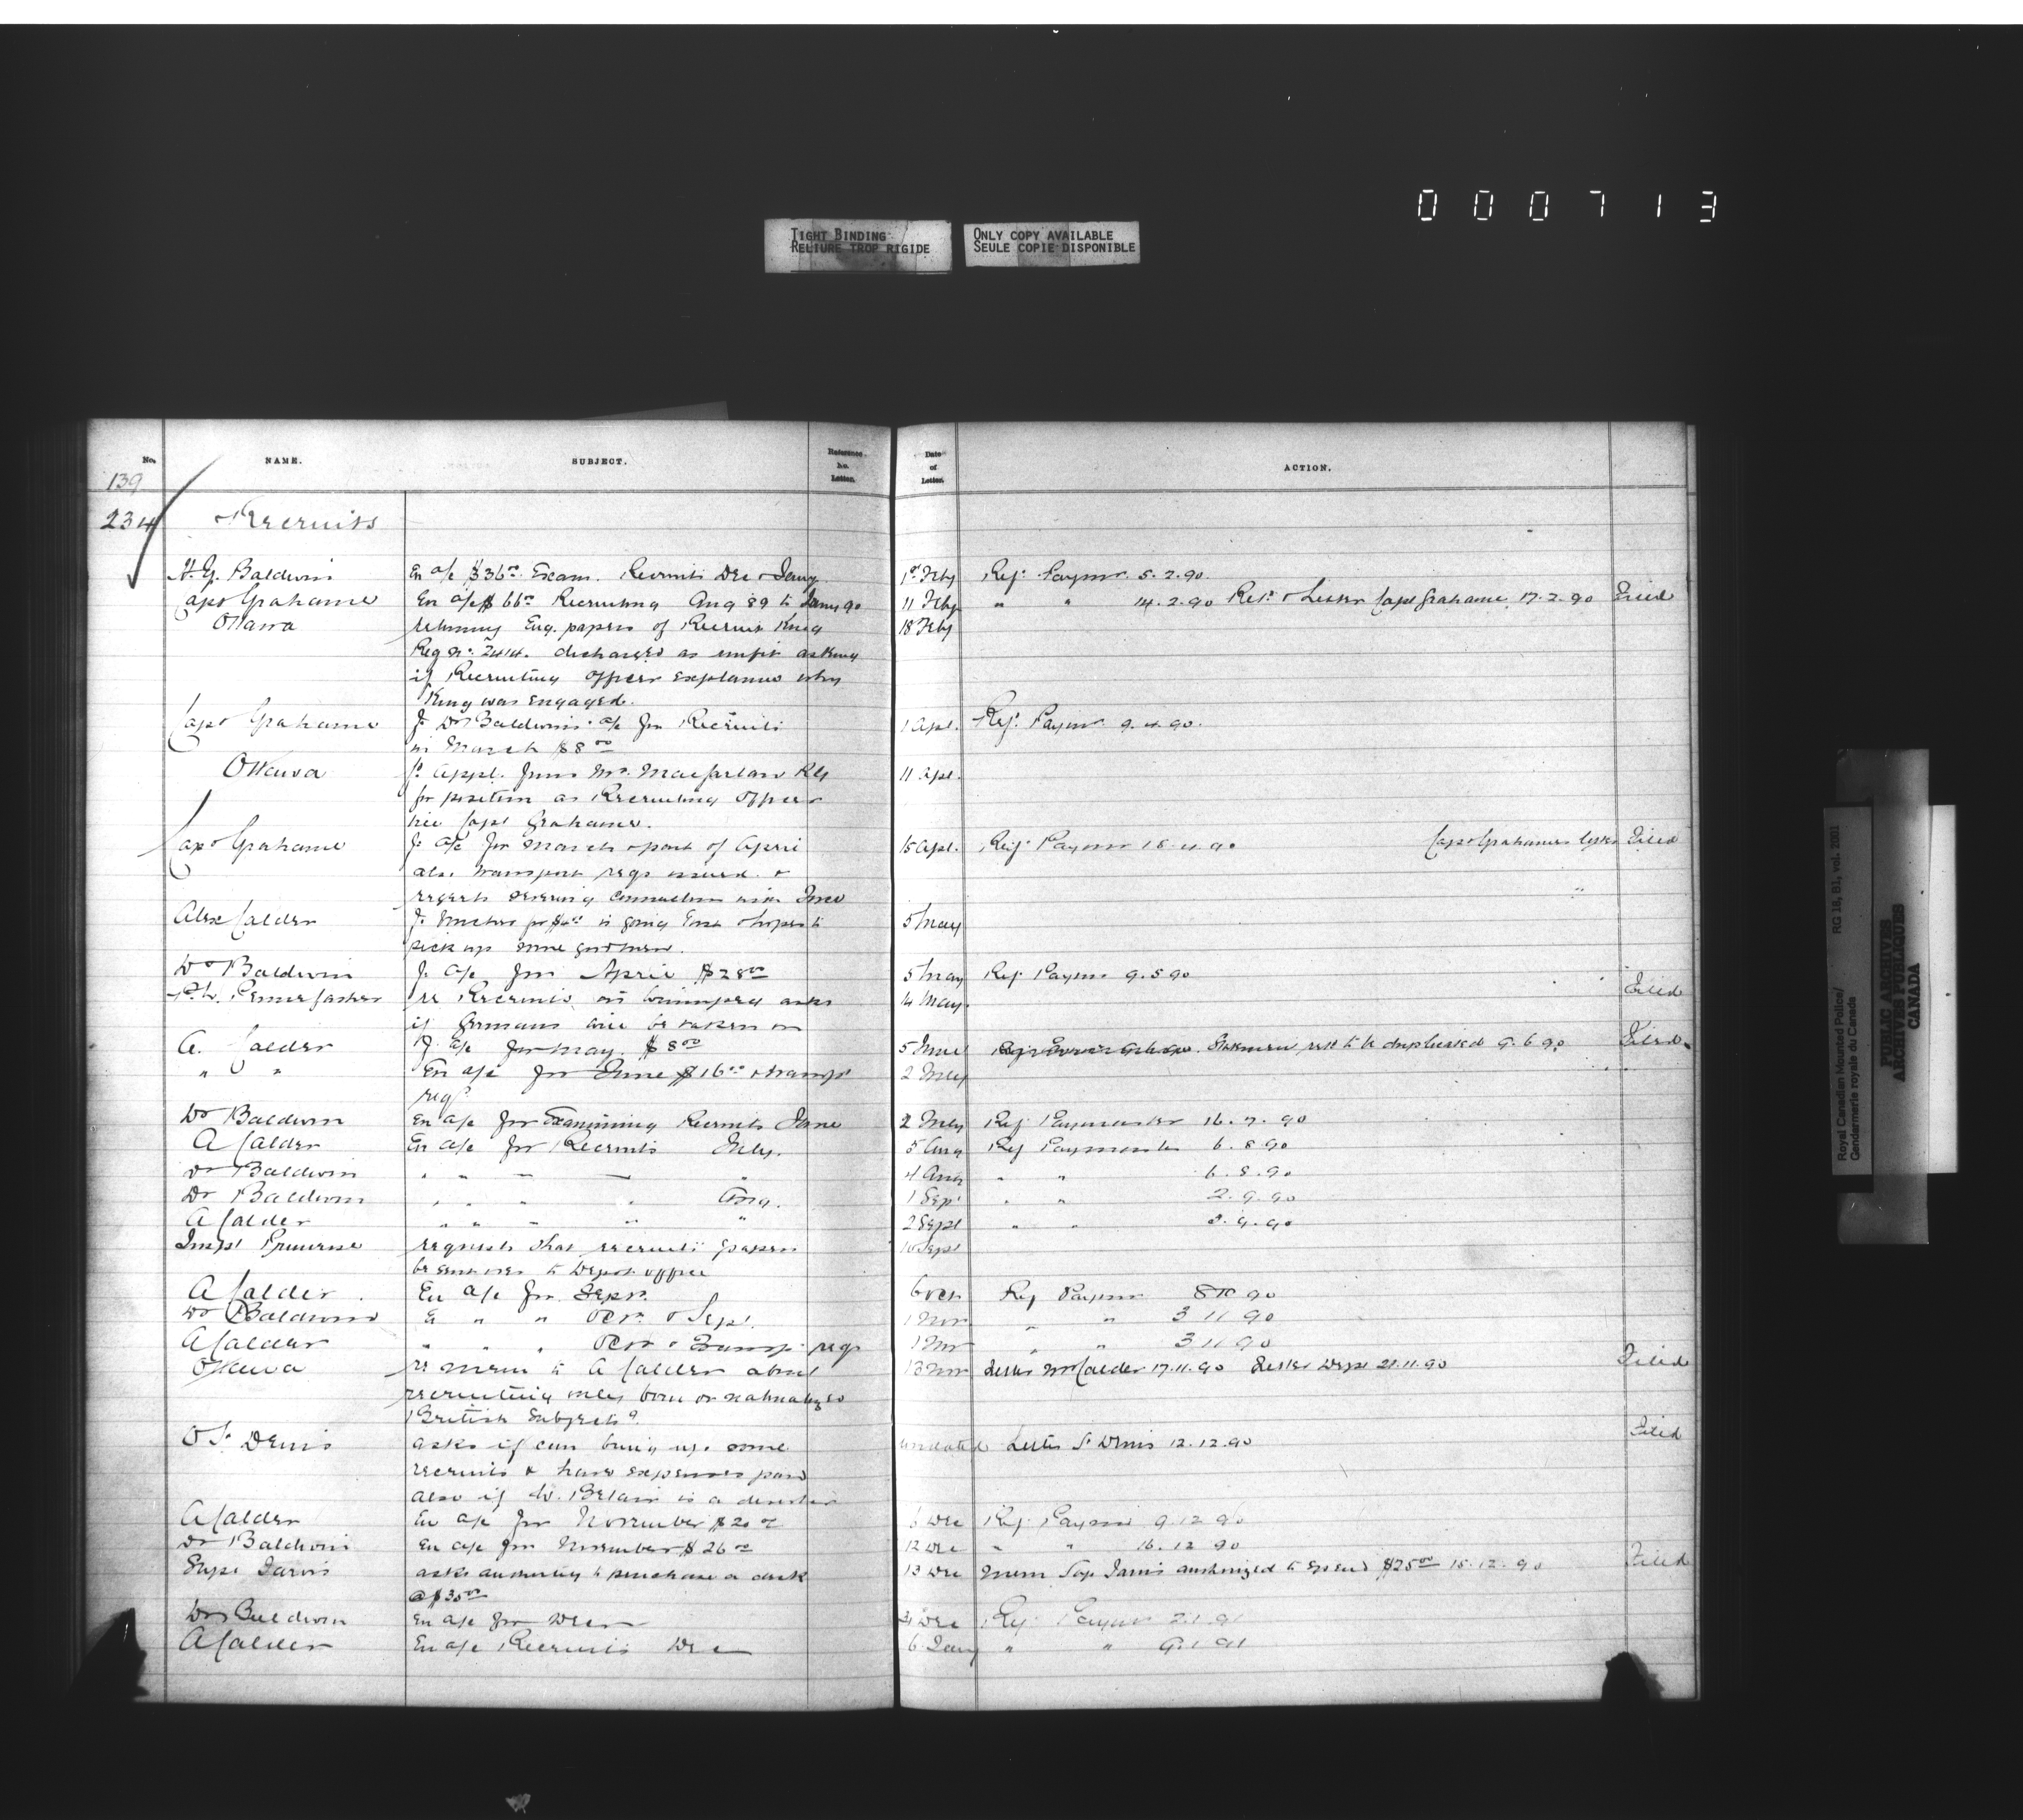 0 0 0 7 1 3
TIGHT BINDING
RELIURE TROP RIGIDE
ONLY COPY AVAILABLE
SEULE COPIE DISPONIBLE
No. NAME. SUBJECT. Reference No. Letter. Date of Letter. ACTION.
139
234 Recruits
H. Y. Baldwin En a/c $36.00 Exam. Recruits Dec & Jany 1st Feby Ref. Paymr 5.2.90.
Capt Grahame En a/c $66.00 Recruiting Aug 89 to Jany 90 11 Feby " " 14.2.90 Letter Capt Grahame 17.2.90 Filed
Ottawa returning Eng. papers of Recruit King 18 Feby
Reg No. 2414. discharged as unfit asking
if Recruiting officer explains why
King was engaged.
Capt Grahame f. Dr Baldwin's a/c for Recruits 1 Apl. Ref. Paymr 9.4.90.
in March $8.00
Ottawa f. appl. from Mr. Macfarlane 11 Apl.
for position as Recruiting Officer
vice Capt Grahame.
Capt Grahame f. a/c for March & part of April 15 Apl. Ref. Paymr 18.4.90 Capt Grahames letter Filed
also transport reqs issued &
regrets severing connection with Force
Alex Calder f. for $4.00 is going East & hopes to 5 May
pick up some good men.
Dr Baldwin f. a/c for April $28.00 5 May Ref. Paymr 9.5.90
re Recruits in Winnipeg asks 14 May. Filed
if Germans will be taken on
A. Calder f. a/c for May. $8.00 5 June Statement to be duplicated 9.6.90 Filed.
" " En a/c for June $16.00 & transpt 2 July
reqs
Dr Baldwin En a/c for Examining Recruits June 2 July Ref Paymaster 16.7.90
A Calder En a/c for Recruits July. 5 Aug Ref Paymaster 6.8.90
Dr Baldwin " " " " " 4 Aug " " 6.8.90
Dr Baldwin " " " " Aug. 1 Sept " " 2.9.90
A Calder " " " " " 2 Sept " " 3.9.90
Inspt Primrose requests that recruits papers 10 Sept
be sent over to Depot office
A Calder En a/c for Sepr. 6 Oct Ref Paymr 8 10 90
Dr Baldwin E " " Oct. & Sept. 1 Nov " " 3 11 90
A Calder " " " Oct & Transp. reqs 1 Nov " " 3 11 90
Ottawa re mem to A Calder about 13 Nov Letter Mr Calder 17.11.90 Letter Dept 21.11.90 Filed
recruiting only born or naturalized
British Subjects.
O St Denis asks if can bring up some undated Letter St Denis 12.12.90 Filed
recruits & have expenses paid
also if W. Belair is a deserter
A Calder En a/c for November $20.00 Dec Ref. Paymr 9.12.90
Dr Baldwin En a/c for November $26.00 12 Dec " " 16.12.90
Supt Jarvis asks authority to purchase a desk 13 Dec Mem Sup Jarvis authorized to expend $25.00 15.12.90 Filed
@ $30.00
Dr Baldwin En a/c for Decr 31 Dec Ref. Paymr 2.1.91
A Calder En a/c Recruits Dec 6 Jany " " 9.1.91
Royal Canadian Mounted Police/
Gendarmerie royale du Canada
RG 18, B1, vol. 2001
PUBLIC ARCHIVES
ARCHIVES PUBLIQUES
CANADA